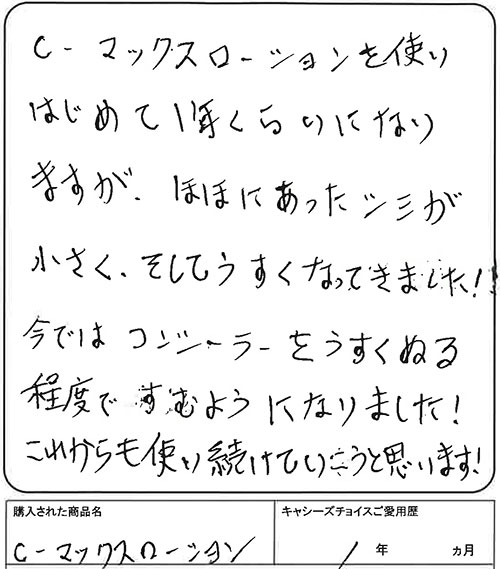 C-マックスローションを使い
はじめて1年くらいになり
ますが、ほほにあったシミが
小さく、そしてうすくなってきました!!
今ではコンシーラーをうすくぬる
程度ですむようになりました!
これからも使い続けていこうと思います!
購入された商品名 キャシーズチョイスご愛用歴
C-マックスローション 1年 ヵ月